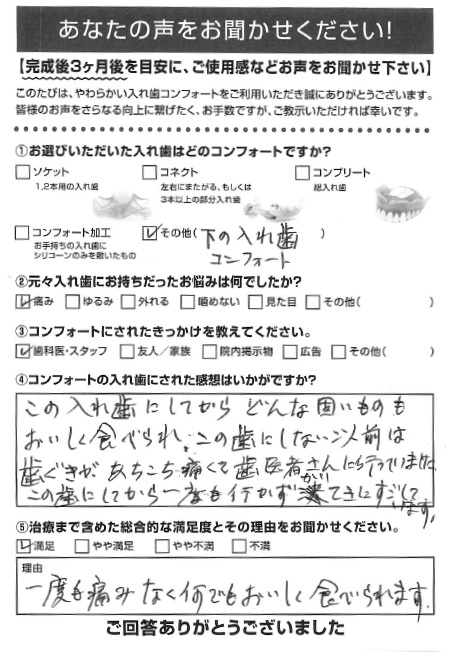 あなたの声をお聞かせください!
【完成後3ヶ月後を目安に、ご使用感などお声をお聞かせ下さい】
このたびは、やわらかい入れ歯コンフォートをご利用いただき誠にありがとうございます。
皆様のお声をさらなる向上に繋げたく、お手数ですが、ご教示いただければ幸いです。
①お選びいただいた入れ歯はどのコンフォートですか?
□ソケット □コネクト □コンプリート
1,2本用の入れ歯 左右にまたがる、もしくは 総入れ歯
3本以上の部分入れ歯
□コンフォート加工 ☑その他(下の入れ歯)
お手持ちの入れ歯に コンフォート
シリコーンのみを敷いたもの
②元々入れ歯にお持ちだったお悩みは何でしたか?
☑痛み □ゆるみ □外れる □噛めない □見た目 □その他( )
③コンフォートにされたきっかけを教えてください。
☑歯科医・スタッフ □友人/家族 □院内掲示物 □広告 □その他( )
④コンフォートの入れ歯にされた感想はいかがですか?
この入れ歯にしてから どんな固いものも
おいしく食べられ、この歯にしない以前は
歯ぐきが あちこち痛くて歯医者さんに行っていましたが
この歯にしてから一度も行かず すごして
います。
⑤治療まで含めた総合的な満足度とその理由をお聞かせください。
☑満足 □やや満足 □やや不満 □不満
理由
一度も痛みなく何でもおいしく食べられます。
ご回答ありがとうございました